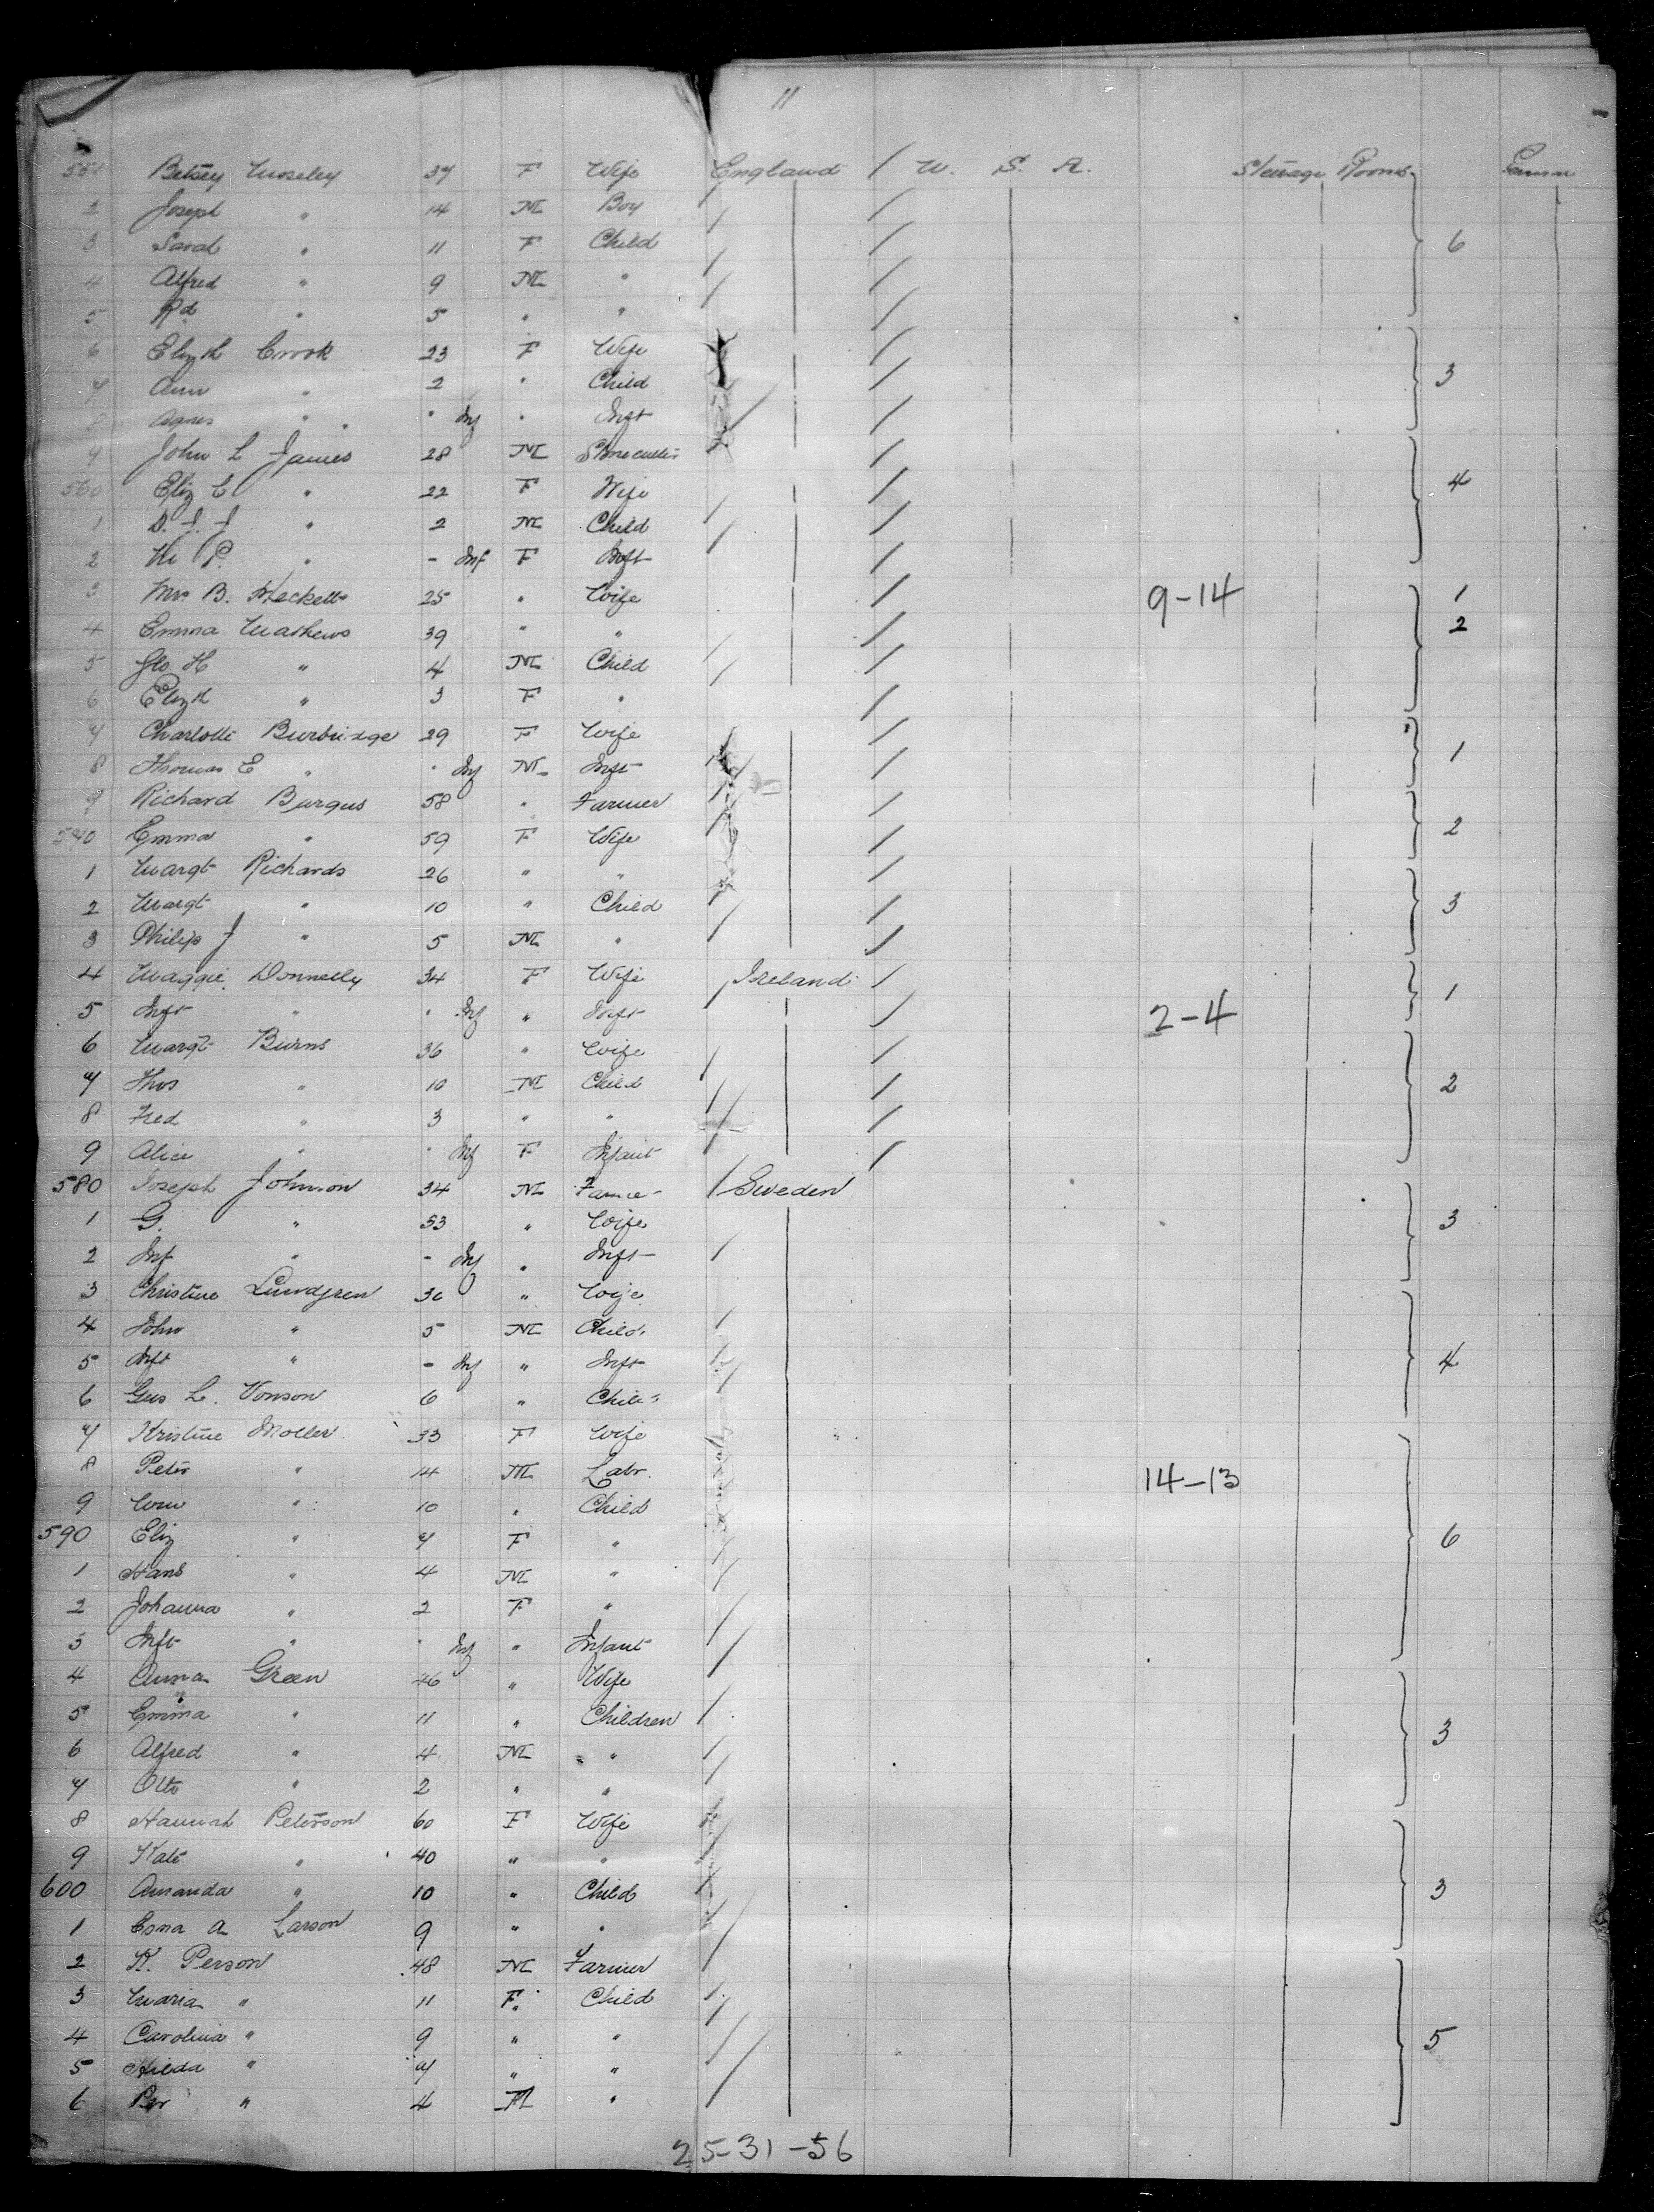 11
551 Betsey Moseley 37 F Wife England U. S. A. Steerage Rooms
2 Joseph " 14 M Boy
3 Sarah " 11 F Child 6
4 Alfred " 9 M "
5 Rd " 5 " "
6 Elizth Crook 23 F Wife
7 Ann " 2 " Child 3
8 Agnes " " Inf " Inft
9 John L James 28 M Stonecutter
560 Eliz C " 22 F Wife 4
1 D. J. J " 2 M Child
2 P. " - Inf F Inft
3 Mrs B. 25 " Wife 9-14 1
4 Emma Mathews 39 " " 2
5 Geo H " 4 M Child
6 Elizth " 3 F "
7 Charlotte Burbridge 29 F Wife
8 Thomas E " " Inf M Inft 1
9 Richard Burgus 58 " Farmer
570 Emma " 59 F Wife 2
1 Margt Richards 26 " "
2 Margt " 10 " Child 3
3 Philip J " 5 M "
4 Maggie Donnelly 34 F Wife Ireland
5 Inft " " Inf " Inft 2-4 1
6 Margt Burns 36 " Wife
7 Thos " 10 M Child 2
8 Fred " 3 " "
9 Alice " " Inf F Infant
580 Joseph Johnson 34 M Farmer Sweden
1 G. " 53 " Wife 3
2 Inf " - Inf " Inft
3 Christine Lundgren 30 " Wife
4 John " 5 M Child
5 Inft " - Inf " Inft 4
6 Gus L. Vonson 6 " Child
7 Kristine Moller 33 F Wife
8 Peter " 14 M Labr. 14-13
9 Wm " 10 " Child
590 Eliz " 7 F " 6
1 Hans " 4 M "
2 Johanna " 2 F "
3 Inft " " Inf " Infant
4 Anna Green 46 " Wife
5 Emma " 11 " Children
6 Alfred " 4 M " 3
7 Otto " 2 " "
8 Hannah Peterson 60 F Wife
9 Kate " 40 " "
600 Amanda " 10 " Child 3
1 A Larson 9 " "
2 K. Person 48 M Farmer
3 Maria " 11 F " Child
4 Carolina " 9 " " 5
5 Hilda " 7 " "
6 Per " 4 M "
25-31-56